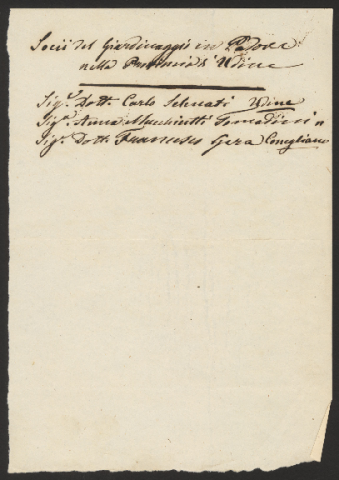 Socii del Giardinaggio in Padova
nella Provincia di Udine
Sig.r Dott. Carlo Udine
Sig.ra Anna
Sig.r Dott. Francesco Gera Conegliano